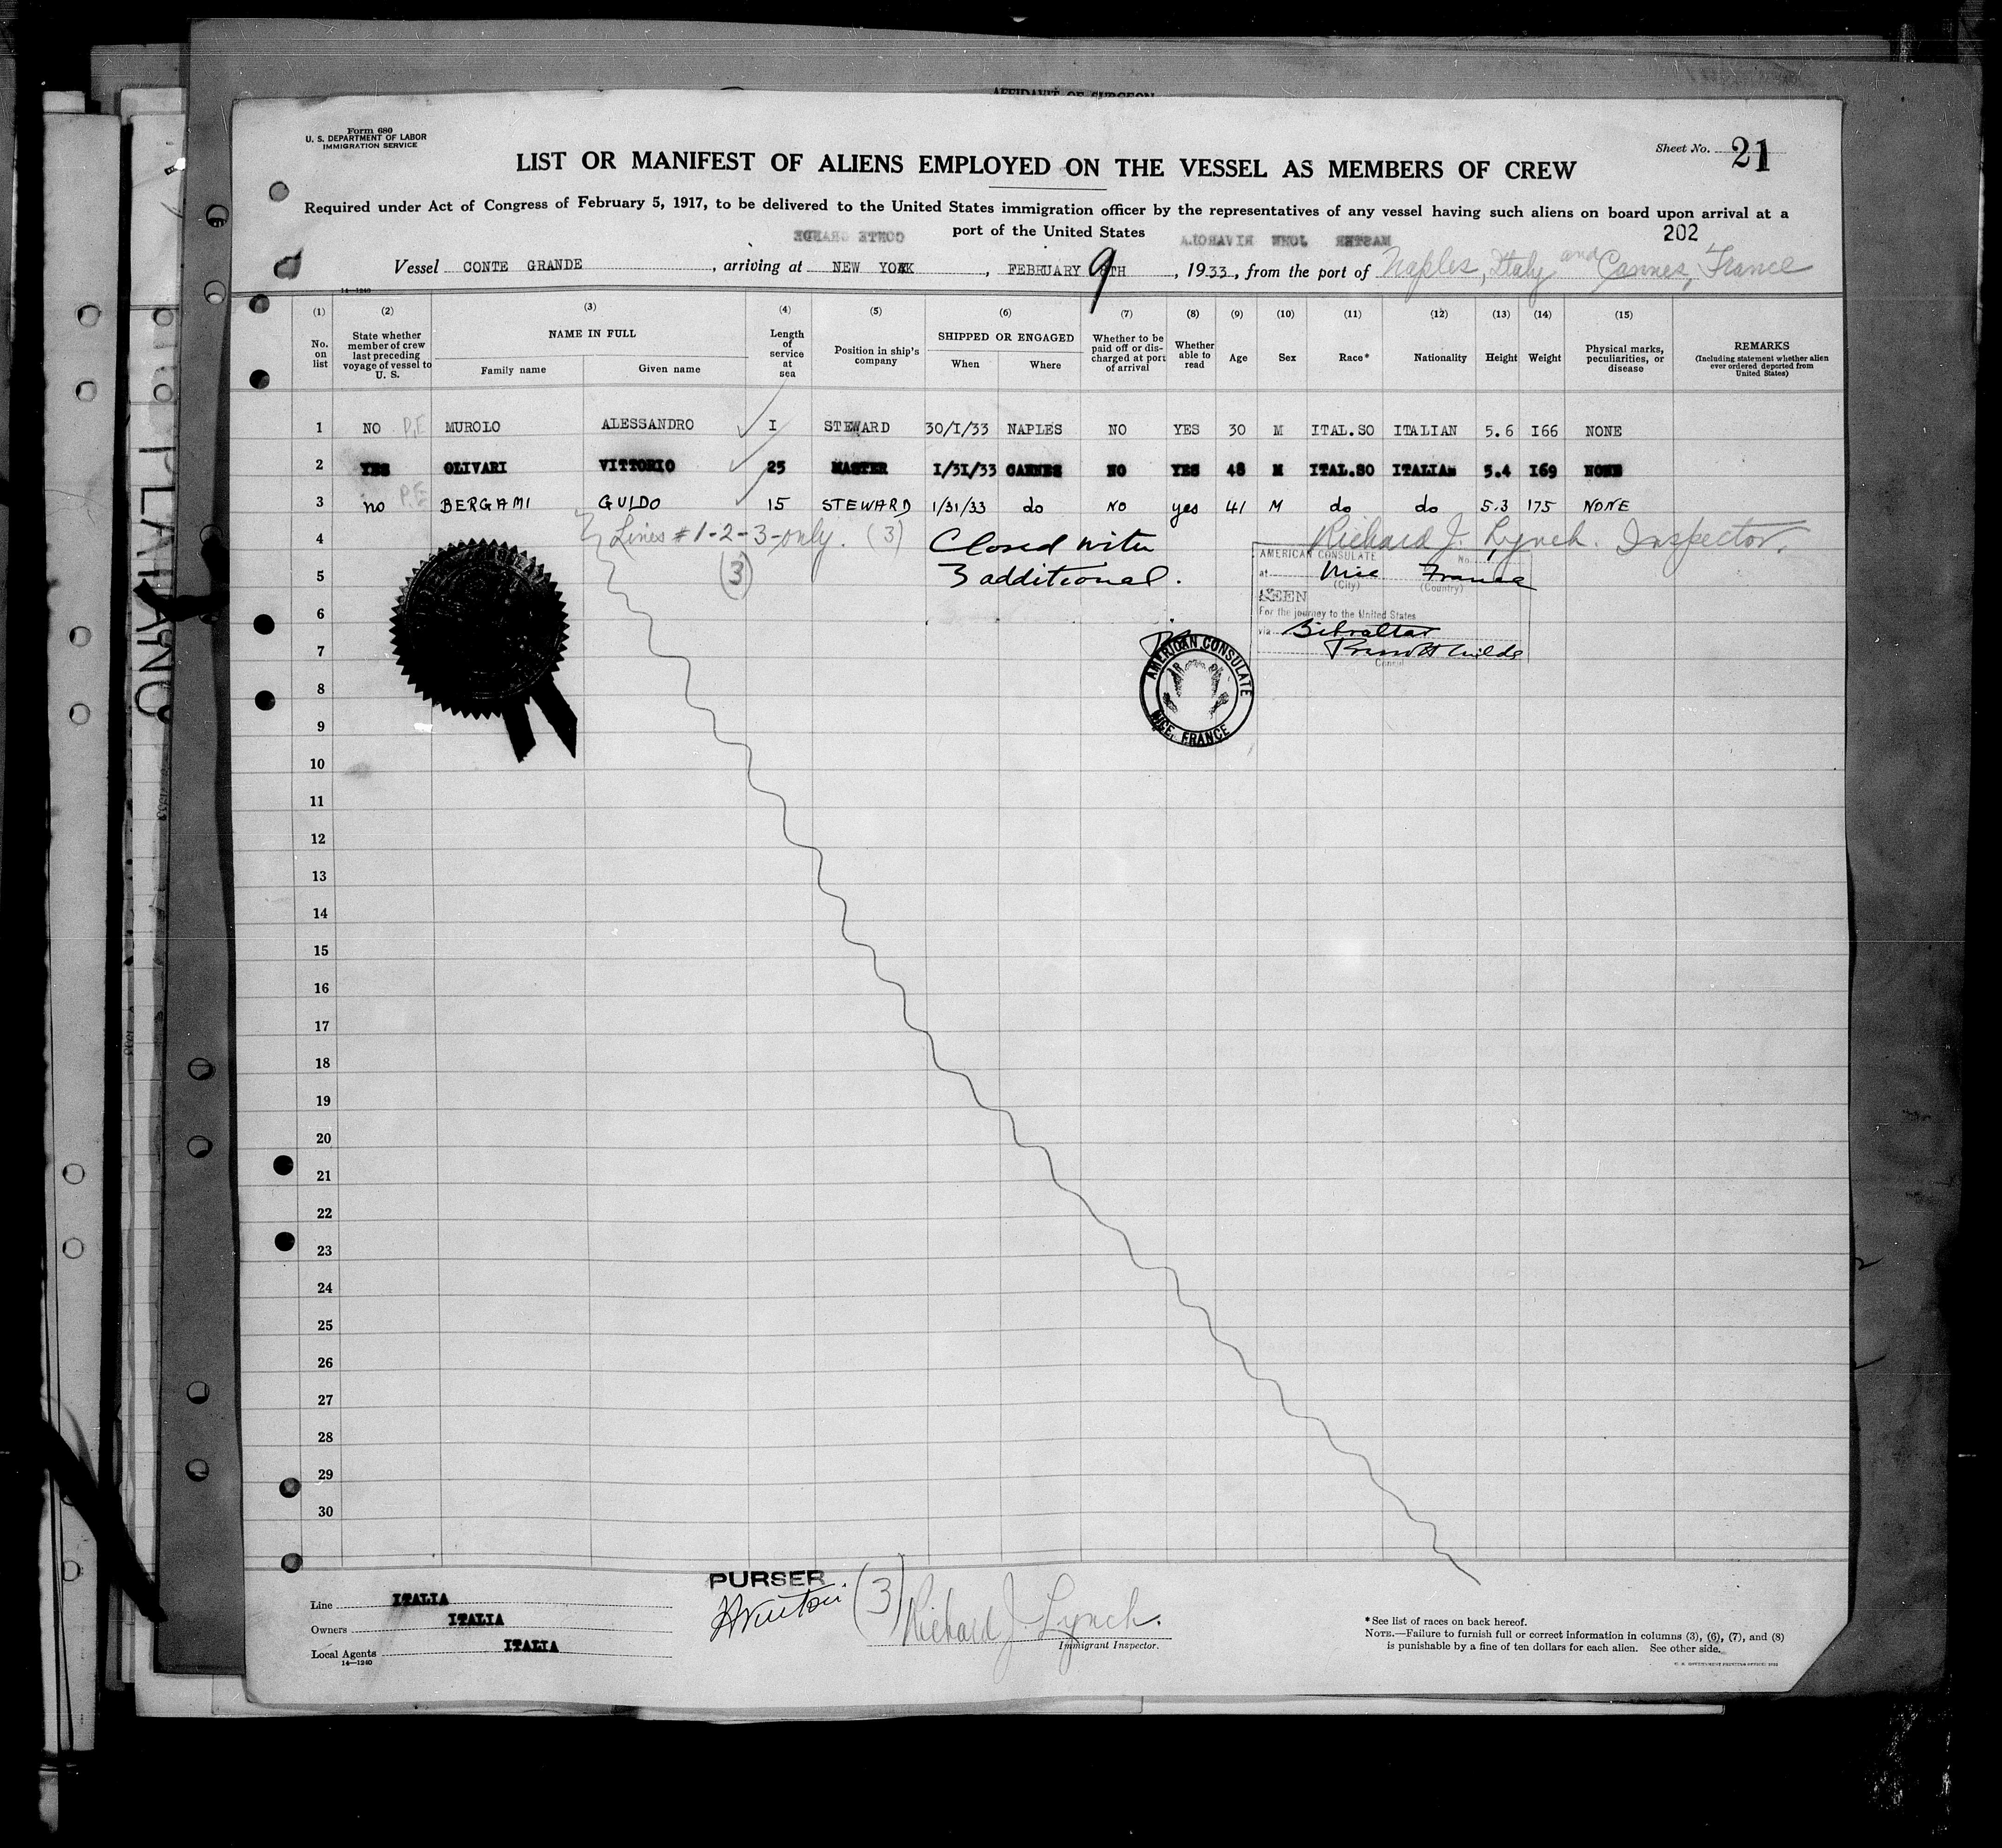 AFFIDAVIT OF SURGEON
Form 680
U. S. DEPARTMENT OF LABOR
IMMIGRATION SERVICE
Sheet No. 21
LIST OR MANIFEST OF ALIENS EMPLOYED ON THE VESSEL AS MEMBERS OF CREW
Required under Act of Congress of February 5, 1917, to be delivered to the United States immigration officer by the representatives of any vessel having such aliens on board upon arrival at a
port of the United States
202
Vessel CONTE GRANDE, arriving at NEW YORK, FEBRUARY 9 8TH, 1933, from the port of Naples, Italy and Cannes, France
14-1240
(1) (2) (3) (4) (5) (6) (7) (8) (9) (10) (11) (12) (13) (14) (15)
No. on list
State whether member of crew last preceding voyage of vessel to U. S.
NAME IN FULL
Family name
Given name
Length of service at sea
Position in ship's company
SHIPPED OR ENGAGED
When
Where
Whether to be paid off or discharged at port of arrival
Whether able to read
Age
Sex
Race*
Nationality
Height
Weight
Physical marks, peculiarities, or disease
REMARKS
(Including statement whether alien ever ordered deported from United States)
1 NO P.E MUROLO ALESSANDRO I STEWARD 30/I/33 NAPLES NO YES 30 M ITAL.SO ITALIAN 5.6 I66 NONE
2 YES OLIVARI VITTORIO 25 MASTER I/3I/33 CANNES NO YES 48 M ITAL.SO ITALIAN 5.4 I69 NONE
3 no P.E BERGAMI GUIDO 15 STEWARD 1/31/33 do NO yes 41 M do do 5.3 175 NONE
4 Lines #1-2-3-only. (3) Closed with Richard J. Lynch. Inspector.
5 (3) 3 additional.
AMERICAN CONSULATE
No.
at Nice France
(City) (Country)
SEEN
For the journey to the United States
via Gibraltar
Consul
AMERICAN CONSULATE
NICE, FRANCE
6
7
8
9
10
11
12
13
14
15
16
17
18
19
20
21
22
23
24
25
26
27
28
29
30
Line ITALIA
Owners ITALIA
Local Agents ITALIA
14—1240
PURSER
(3) Richard J. Lynch.
Immigrant Inspector.
*See list of races on back hereof.
NOTE.—Failure to furnish full or correct information in columns (3), (6), (7), and (8)
is punishable by a fine of ten dollars for each alien. See other side.
U. S. GOVERNMENT PRINTING OFFICE: 1932
PLAIANO